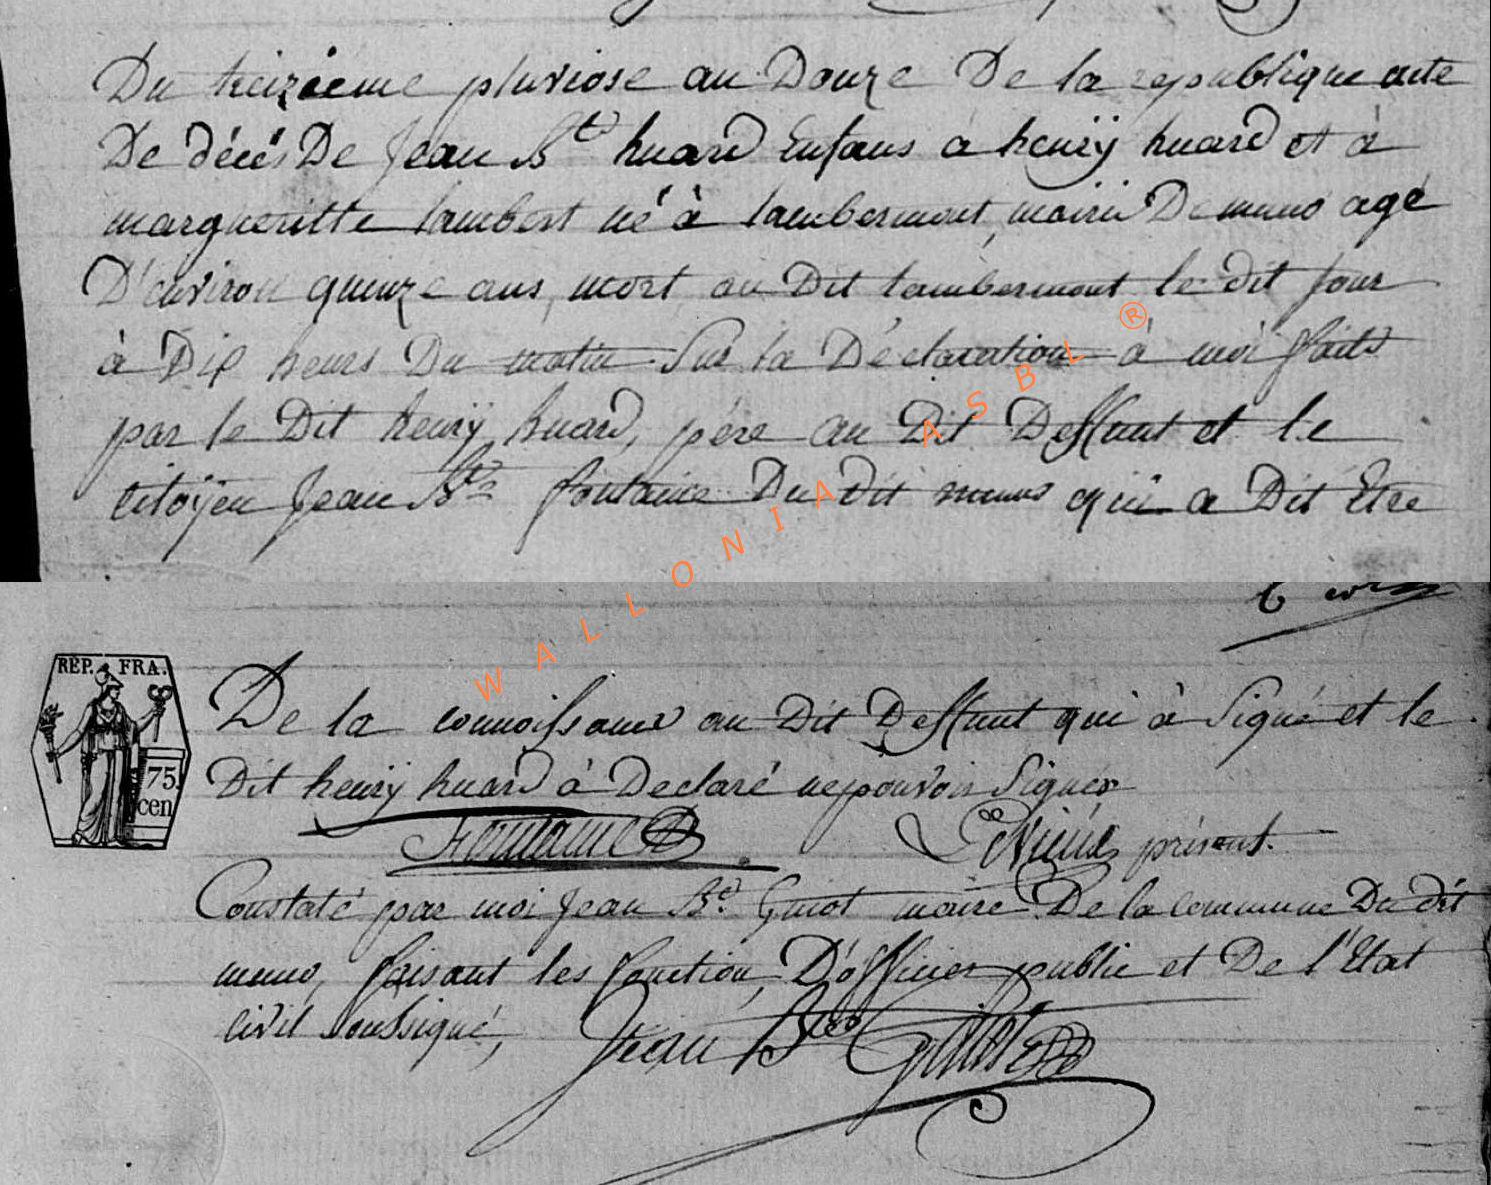 Du treizieme pluviose an Douze De la republique acte
De décés De Jean Bte huard Enfans à henrÿ huard et à
margueritte lambert né à lambermont, mairie De muno agé
D'environ quinze ans, mort au Dit lambermont le dit jour
à Dix heurs Du matin Sur la Declaration à moi faite
par le Dit henrÿ huard, père au Dit Deffunt et le
citoÿen Jean Bte fontaine Du dit muno qui a Dit Etre
De la connoissance au Dit Deffunt qui à Signé et le
Dit henrÿ huard à Declaré ne pouvoir Signer
Fontaine présent.
Constaté par moi Jean Bte Guiot maire De la commune Du dit
muno, faisant les fonction, D'officier public et De l'Etat
civil Soussigné,
Jean Bte Guiot
REP. FRA.
75
cen
WALLONIA ASBL ®